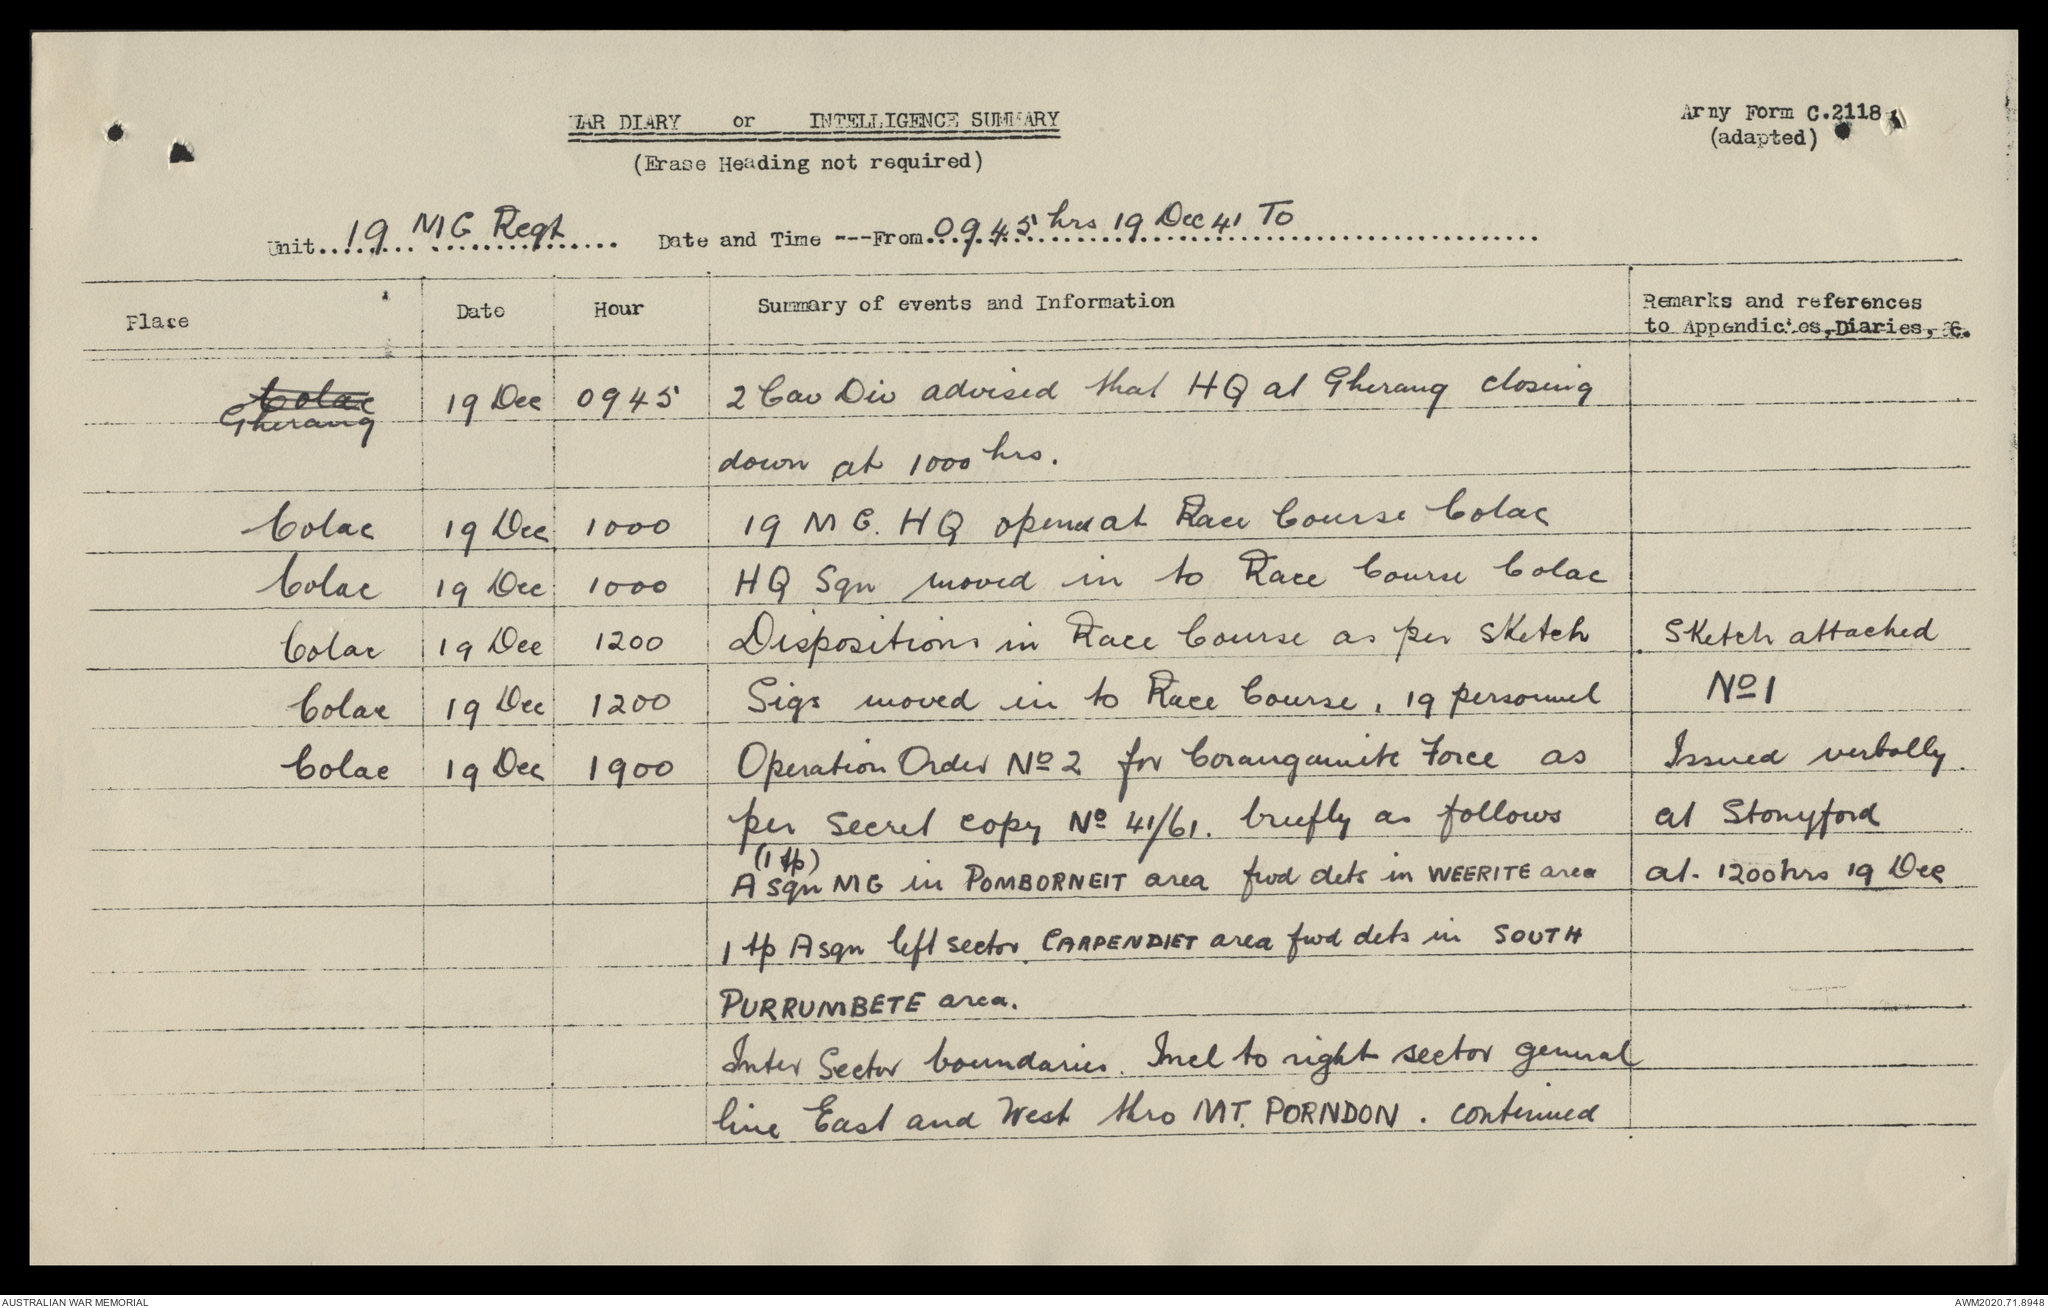 WAR DIARY or INTELLIGENCE SUMMARY
(Erase Heading not required)
Army Form C.2118
(adapted)
Unit 19 MG Regt Date and Time ---From 0945 hrs 19 Dec 41 To
Place Date Hour Summary of events and Information Remarks and references
to Appendicies, Diaries, &c.
Colac
Gherang 19 Dec 0945 2 Cav Div advised that HQ at Gherang closing
down at 1000 hrs.
Colac 19 Dec 1000 19 MG. HQ opened at Race Course Colac
Colac 19 Dec 1000 HQ Sqn moved in to Race Course Colac
Colac 19 Dec 1200 Dispositions in Race Course as per Sketch Sketch attached
Colac 19 Dec 1200 Sigs moved in to Race Course, 19 personnel No 1
Colac 19 Dec 1900 Operation Order No 2 for Corangamite Force as Issued verbally
per Secret copy No 41/61. briefly as follows at Stonyford
(1 tp)
A sqn MG in POMBORNEIT area fwd dets in WEERITE area at. 1200 hrs 19 Dec
1 tp A sqn left sector CARPENDIET area fwd dets in SOUTH
PURRUMBETE area.
Inter Sector boundaries. Incl to right sector general
line East and West thro MT. PORNDON. continued
AUSTRALIAN WAR MEMORIAL AWM2020.71.8948